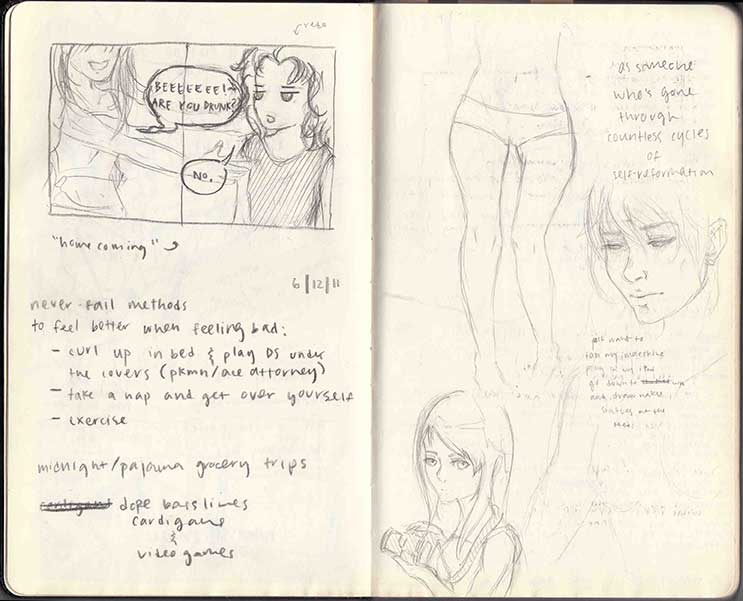 redo
BEEEEEEE!~
ARE YOU DRUNK?
NO.
"homecoming"
6/12/11
never-fail methods
to feel better when feeling bad:
- curl up in bed & play DS under
the covers (pkmn/ace attorney)
- take a nap and get over yourself
- exercise
midnight/pajama grocery trips
cardigans dope basslines
cardigans
&
video games
as someone
who's gone
through
countless cycles
of
self-reformation
just want to
go down to
and draw naked